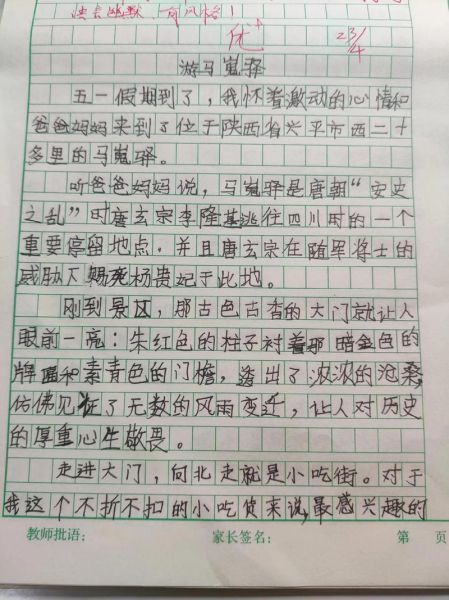 幽默 风格!
优+
23/4
游马嵬驿
五一假期到了,我怀着激动的心情和
爸爸妈妈来到了位于陕西省兴平市西二十
多里的马嵬驿。
听爸爸妈妈说,马嵬驿是唐朝“安史
之乱”时唐玄宗李隆基逃往四川时的一个
重要停留地点,并且唐玄宗在随军将士的
威胁下赐死杨贵妃于此地。
刚到景区,那古色古香的大门就让人
眼前一亮:朱红色的柱子衬着那暗金色的
牌匾和素青色的门檐,透出了浓浓的沧桑,
仿佛见证了无数的风雨变迁,让人对历史
的厚重心生敬畏。
走进大门,向北走就是小吃街。对于
我这个不折不扣的小吃货来说,最感兴趣的
教师批语: 家长签名: 第 页